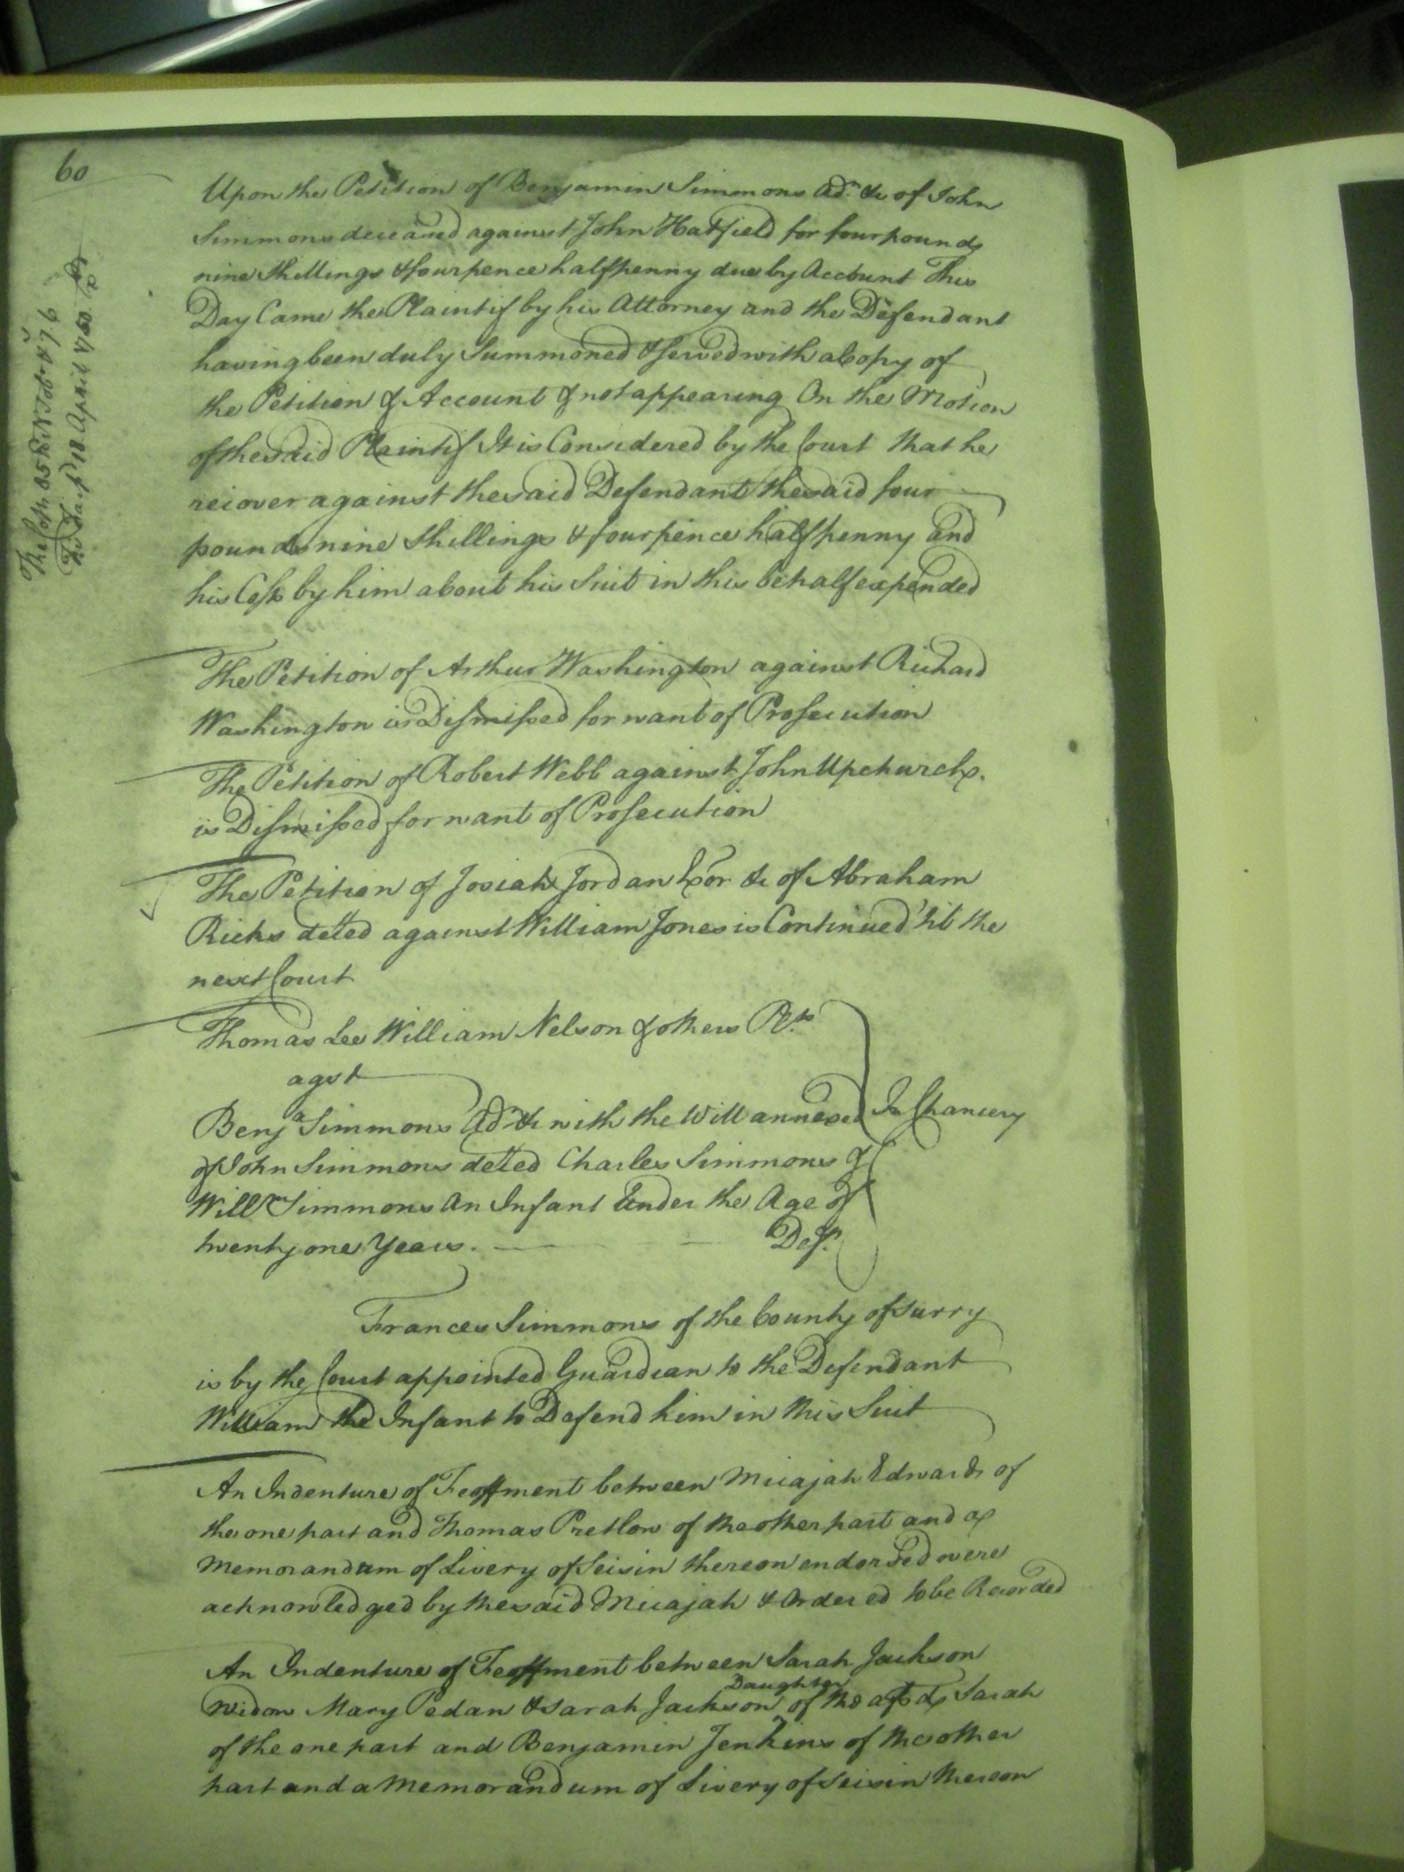 60
Upon the Petition of Benjamin Simmons Adr. &c of John
Simmons deceased against John Hatfield for four pounds
nine shillings & fourpence halfpenny due by Account This
Day Came the Plaintif by his Attorney and the Defendant
having been duly Summoned & served with a Copy of
the Petition & Account & not appearing On the Motion
of the said Plaintif It is Considered by the Court that he
recover against the said Defendant the said four
pounds nine shillings & fourpence halfpenny and
his Costs by him about his Suit in this behalf expended
The Petition of Arthur Washington against Richard
Washington is Dismissed for want of Prosecution
The Petition of Robert Webb against John Upchurch.
is Dismissed for want of Prosecution
The Petition of Josiah Jordan Exor &c of Abraham
Ricks deced against William Jones is Continued 'til the
next Court
Thomas Lee William Nelson & others Plts
agst
Benja Simmons Adr &c with the Will annexed In Chancery
of John Simmons deced Charles Simmons &
Willm Simmons An Infant Under the Age of
twenty one Years. Defts
Frances Simmons of the County of Surry
is by the Court appointed Guardian to the Defendant
William the Infant to Defend him in this Suit
An Indenture of Feoffment between Micajah Edwards of
the one part and Thomas Pretlow of the other part and a
Memorandum of Livery of Seisin thereon endorsed were
acknowledged by the said Micajah & Ordered to be Recorded
An Indenture of Feoffment between Sarah Jackson
Widow Mary Pedan & Sarah Jackson Daughter of the afsd Sarah
of the one part and Benjamin Jenkins of the other
part and a Memorandum of Livery of Seisin thereon